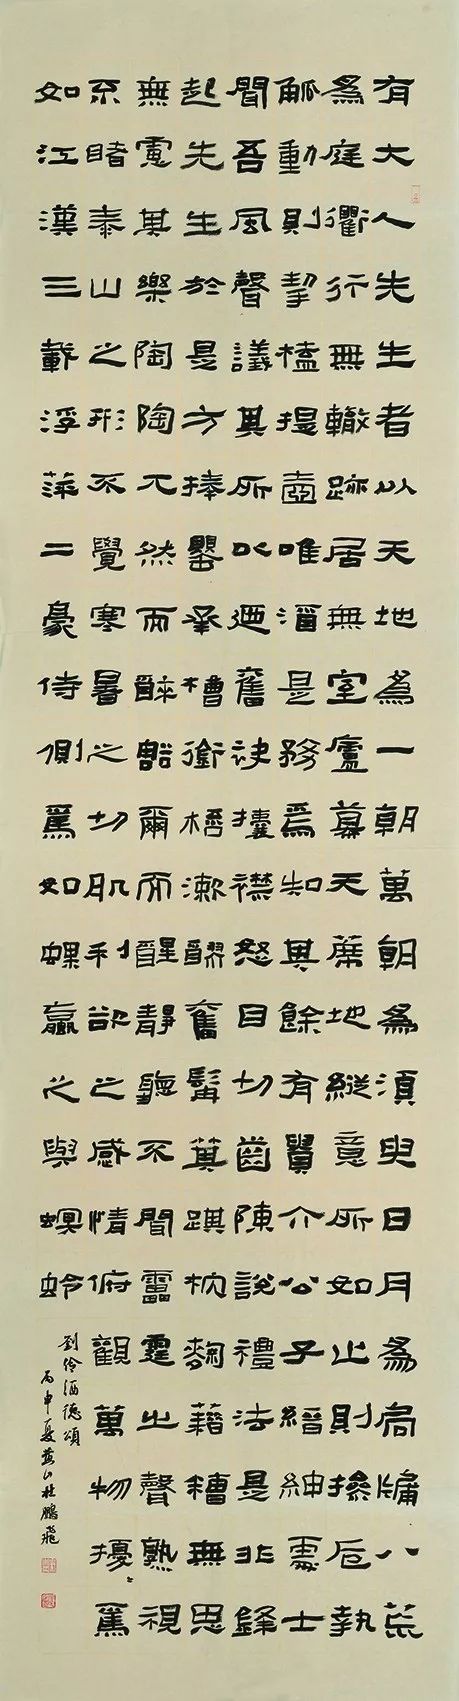 有大人先生者以天地爲一朝萬朝爲須臾日月爲扃牖八荒
爲庭衢行無轍跡居無室廬幕天席地縱意所如止則操卮執
觚動則挈榼提壺唯酒是務焉知其餘有貴介公子縉紳處士
聞吾風聲議其所以廼奮袂攘襟怒目切齒陳說禮法是非鋒
起先生於是方捧罌承槽銜桮漱醪奮髯箕踞枕麴藉糟無思
無慮其樂陶陶兀然而醉豁爾而醒靜聽不聞雷霆之聲熟視
不睹泰山之形不覺寒暑之切肌利欲之感情俯觀萬物擾〻焉
如江漢三載浮萍二豪侍側焉如蜾蠃之與螟蛉
劉伶酒德頌
丙申夏燕山杜鵬飛